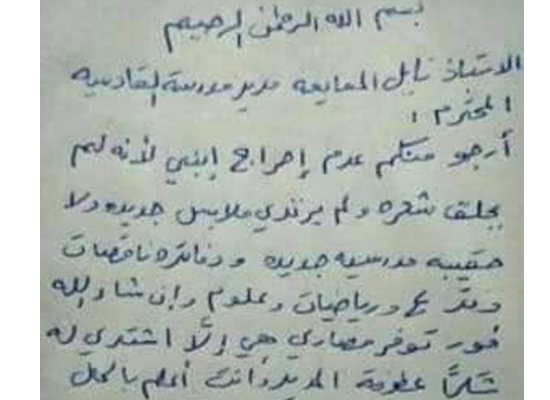 بسم الله الرحمن الرحيم
الاستاذ نايل المعايعه مدير مدرسة القادسيه
المحترم ،
أرجو منكم عدم إحراج إبني لأنه لم
يحلق شعره ولم يرتدي ملابس جديده ولا
حقيبه مدرسيه جديده ودفاتره ناقصات
ورياضيات وعلوم وإن شاء الله
فور توفر مصاري هي إلَّا اشتري له
شكراً عطوفة المدير وأنت أعلم بالحال